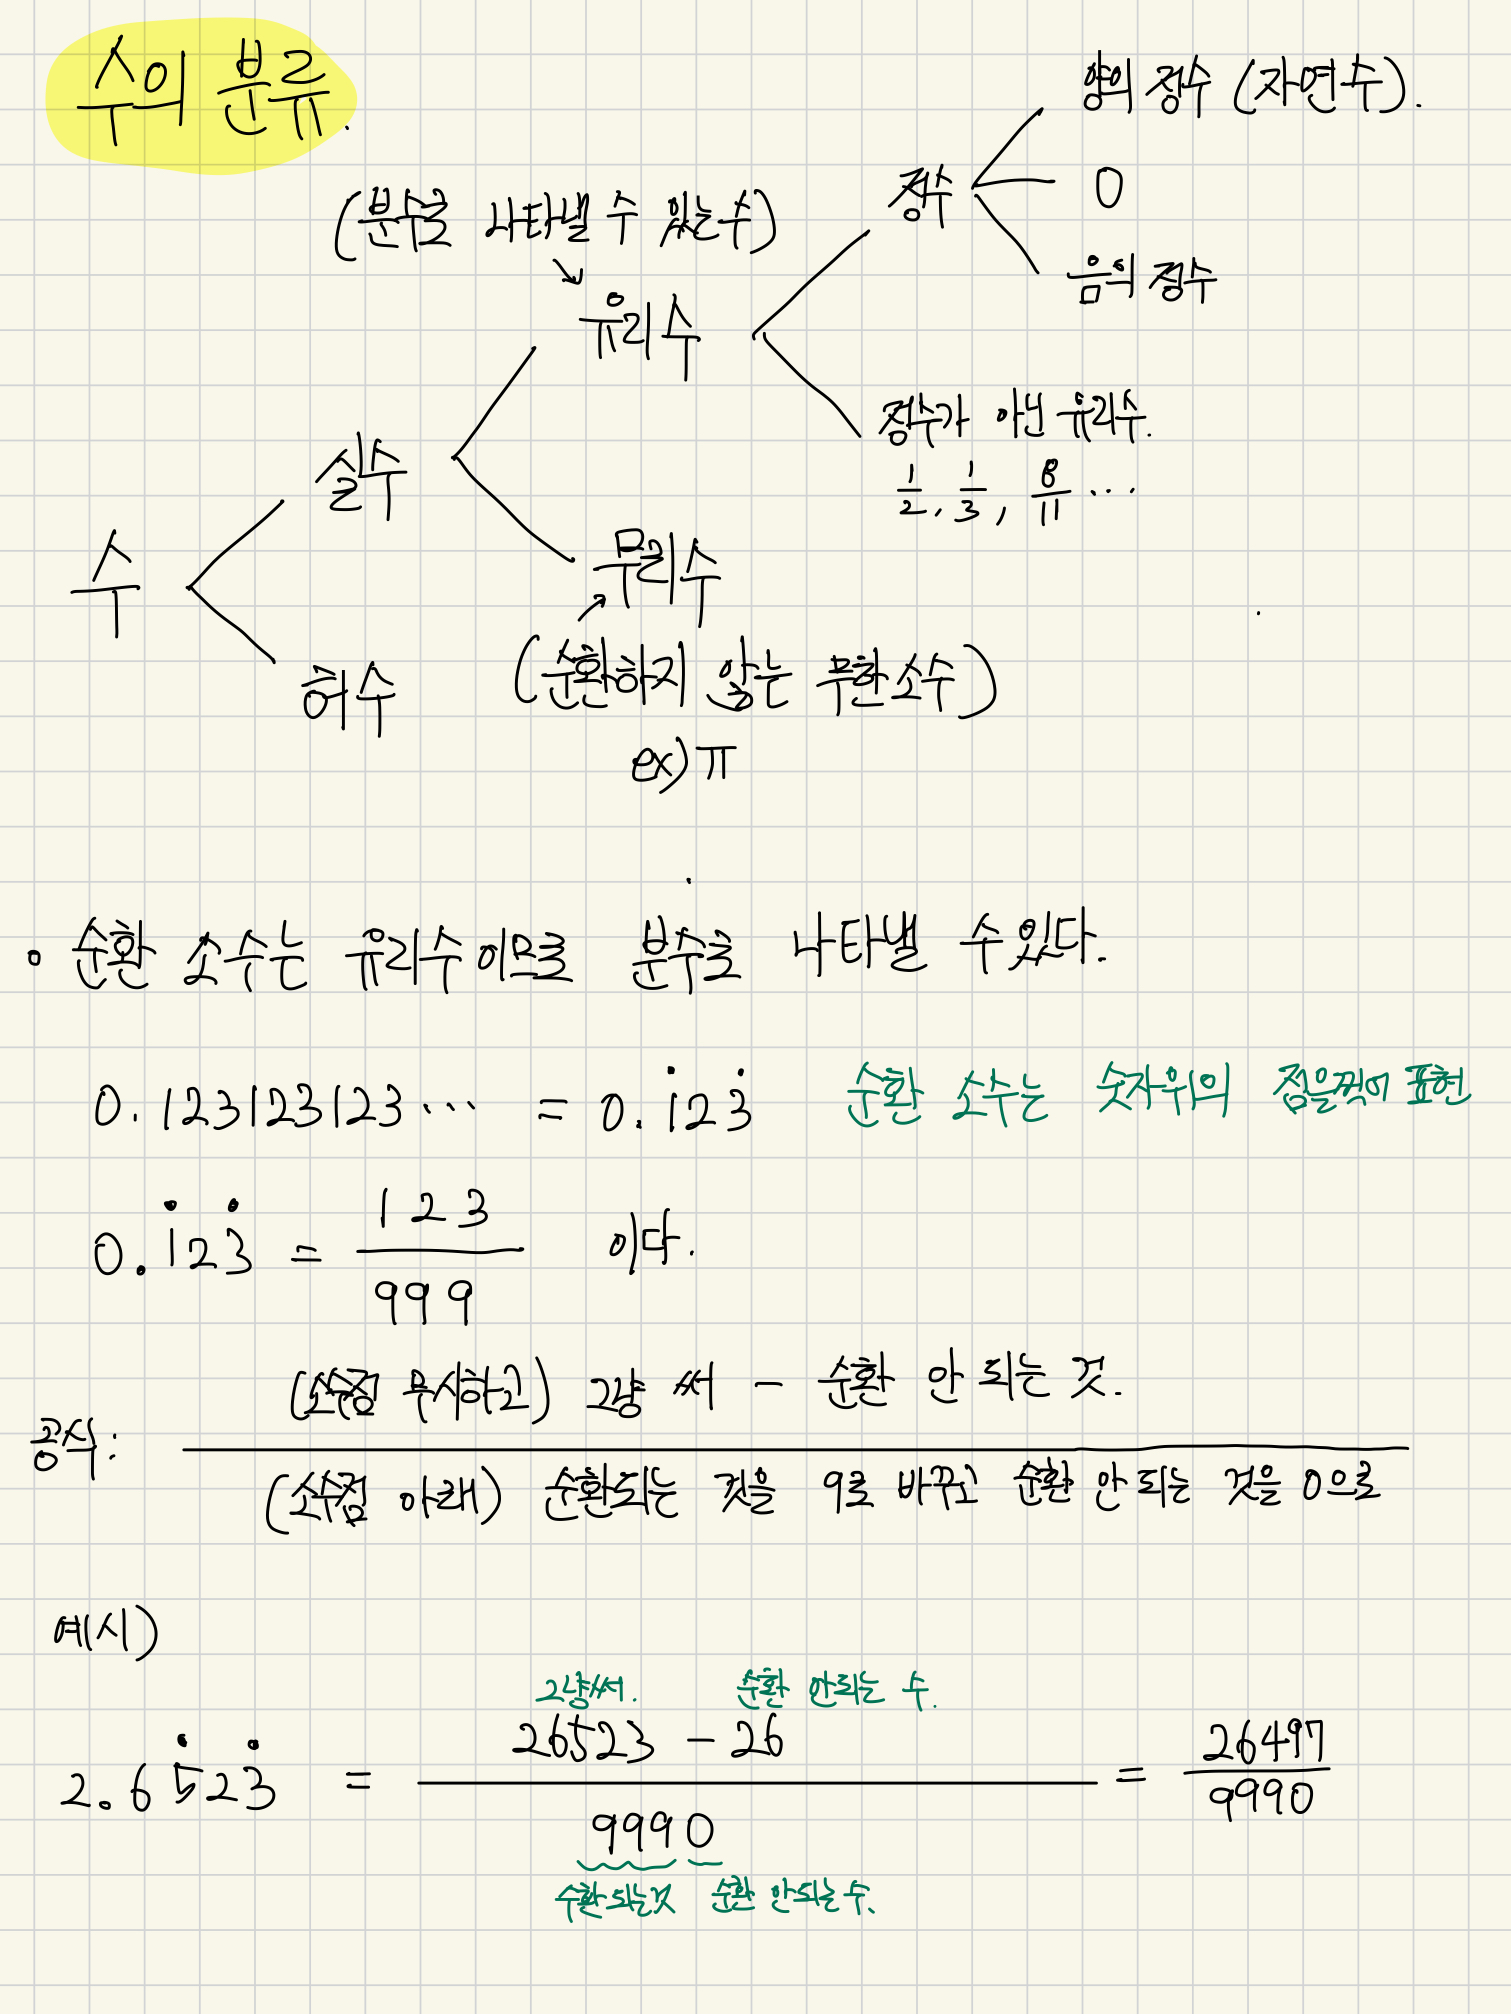 수의 분류.
양의 정수 (자연수).
정수
0
(분수로 나타낼 수 있는 수)
음의 정수
유리수
정수가 아닌 유리수.
실수
1/2, 1/3, 8/11 ...
수
무리수
허수
(순환하지 않는 무한소수)
ex) π
• 순환 소수는 유리수 이므로 분수로 나타낼 수 있다.
0.123123123... = 0.1̇23̇ 순환 소수는 숫자위의 점을찍어 표현
0.1̇23̇ = 123/999 이다.
(소수점 무시하고) 그냥 써 - 순환 안 되는 것.
공식:
(소수점 아래) 순환되는 것을 9로 바꾸고 순환 안 되는 것을 0으로
예시)
그냥써. 순환 안되는 수.
2.65̇23̇ = 26523 - 26 / 9990 = 26497/9990
순환되는것 순환 안되는 수.